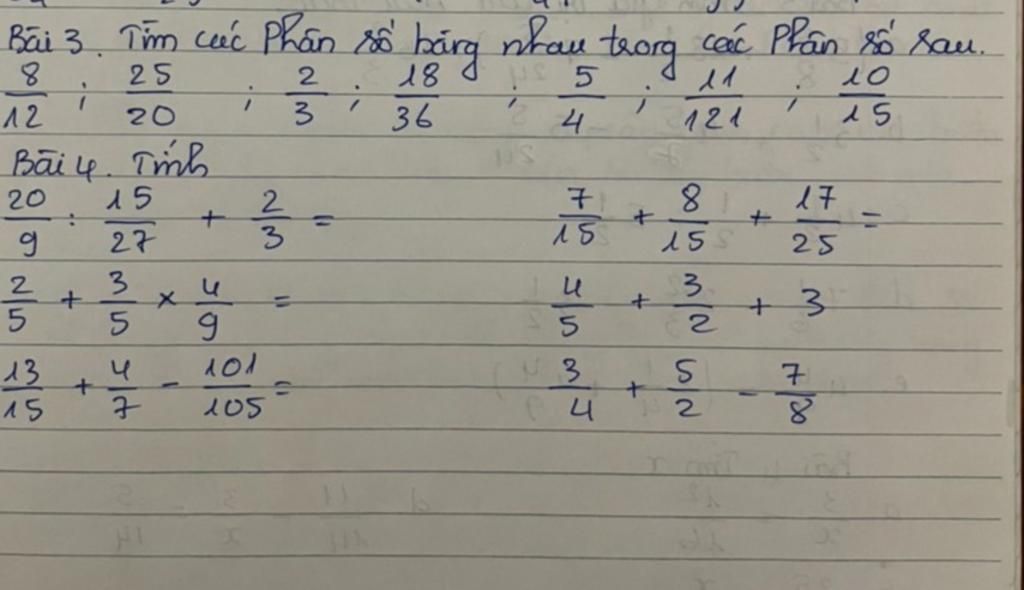 Bài 3. Tìm các Phân số bằng nhau trong các Phân số sau.
8/12 ; 25/20 ; 2/3 ; 18/36 ; 5/4 ; 11/121 ; 10/15
Bài 4. Tính
20/9 : 15/27 + 2/3 = 7/15 + 8/15 + 17/25 =
2/5 + 3/5 × 4/9 = 4/5 + 3/2 + 3
13/15 + 4/7 - 101/105 = 3/4 + 5/2 - 7/8